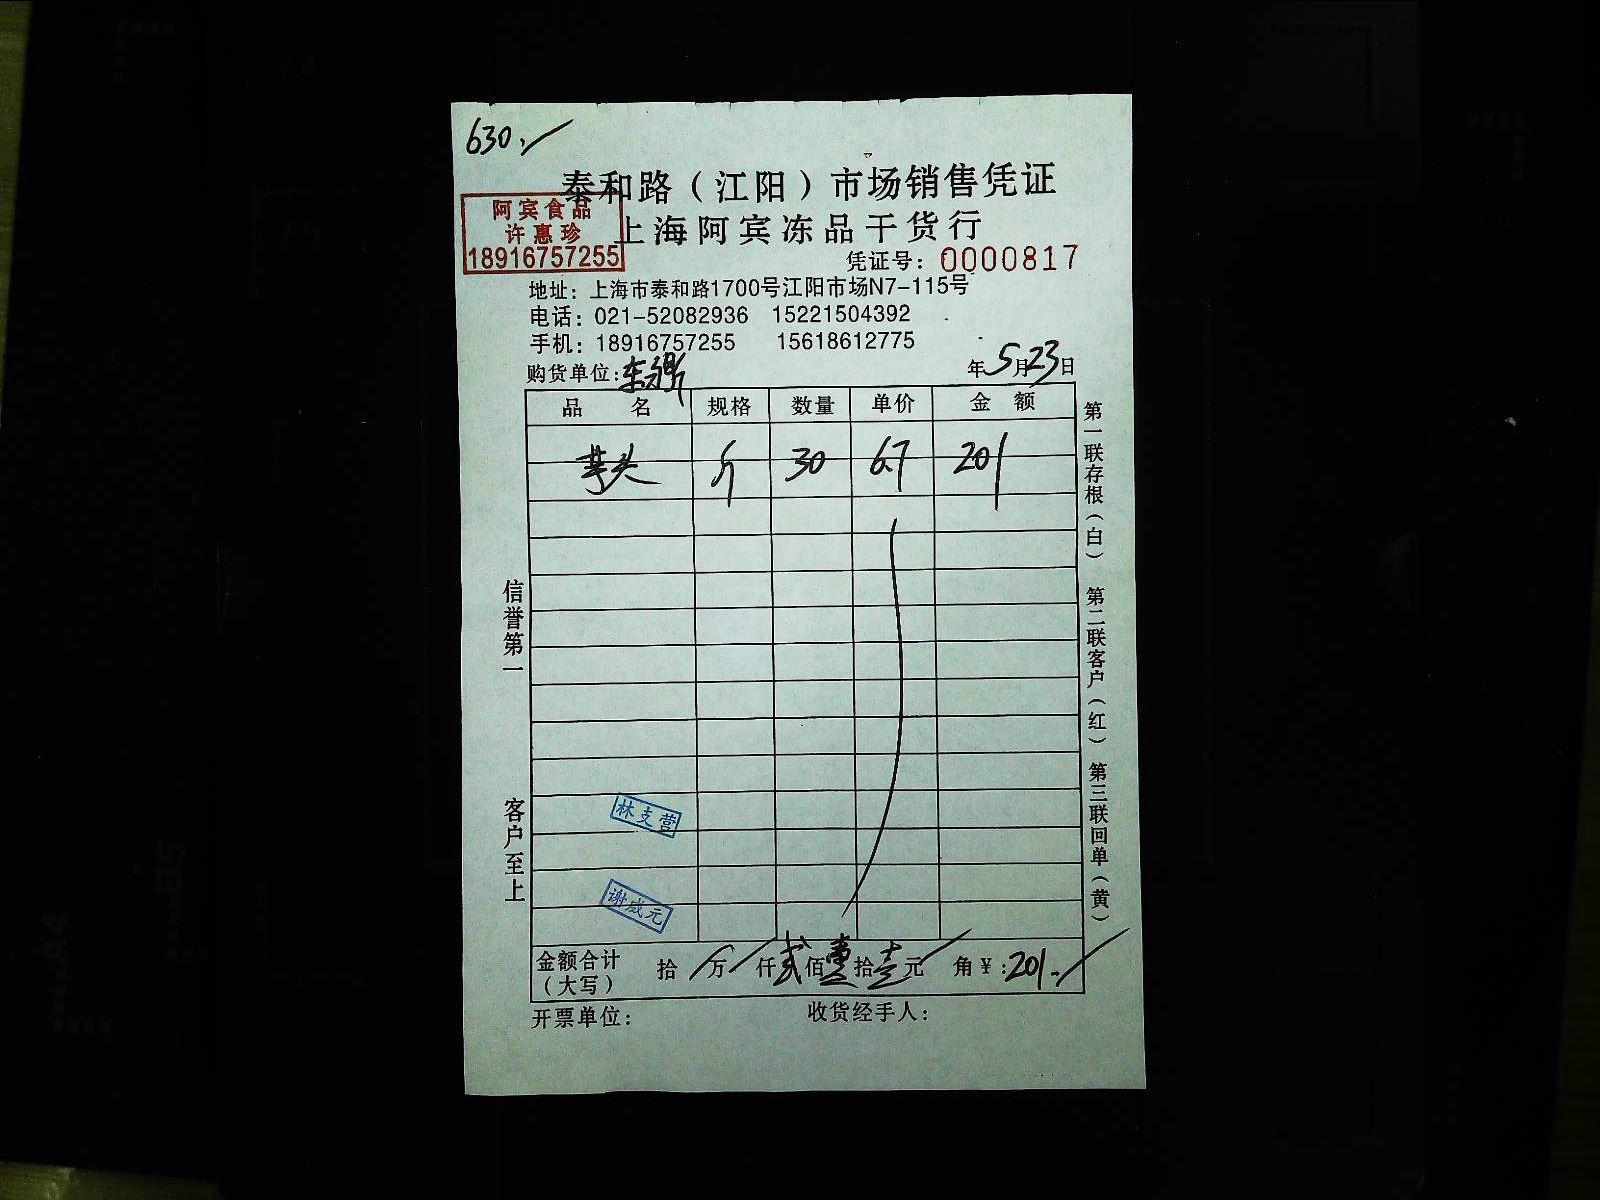 630.
泰和路（江阳）市场销售凭证
阿宾食品
许惠珍
18916757255
上海阿宾冻品干货行
凭证号：0000817
地址：上海市泰和路1700号江阳市场N7-115号
电话：021-52082936 15221504392
手机：18916757255 15618612775
购货单位： 年5月23日
品 名 规格 数量 单价 金 额
芋头 斤 30 6.7 201
信誉第一
客户至上
第一联存根（白） 第二联客户（红） 第三联回单（黄）
林支营
谢成元
金额合计（大写） 拾 万 仟贰佰 拾壹元 角¥:201.
开票单位： 收货经手人：